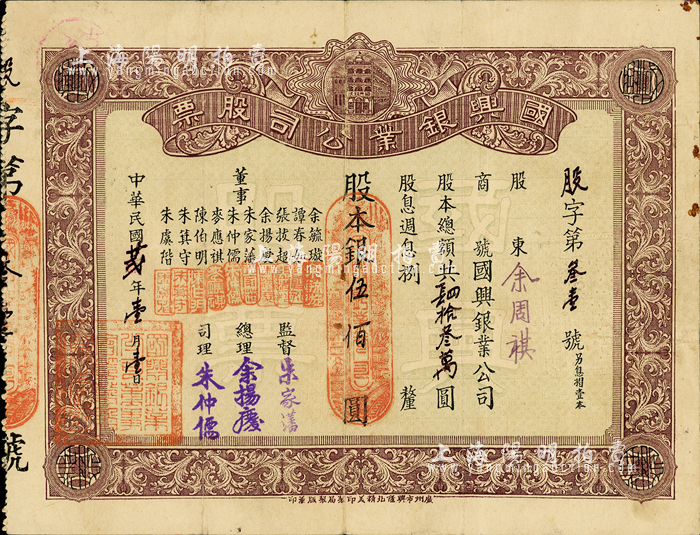 上海陽明拍賣
www.yangmingauction.com
國興銀業公司股票
股字第叁壹號 另息摺壹本
股東余周祺
商號國興銀業公司
股本總額共四拾叁萬圓
股息週息捌釐
股本銀伍佰圓
董事
余毓璇
譚春
張拔超
余揚慶
朱家藩
朱仲儒
麥應祺
陳伯明
朱箕守
朱虞階
監督 朱家藩
總理 余揚慶
司理 朱仲儒
中華民國年壹月壹日
股字第號
上海陽明拍賣
www.yangmingauction.com